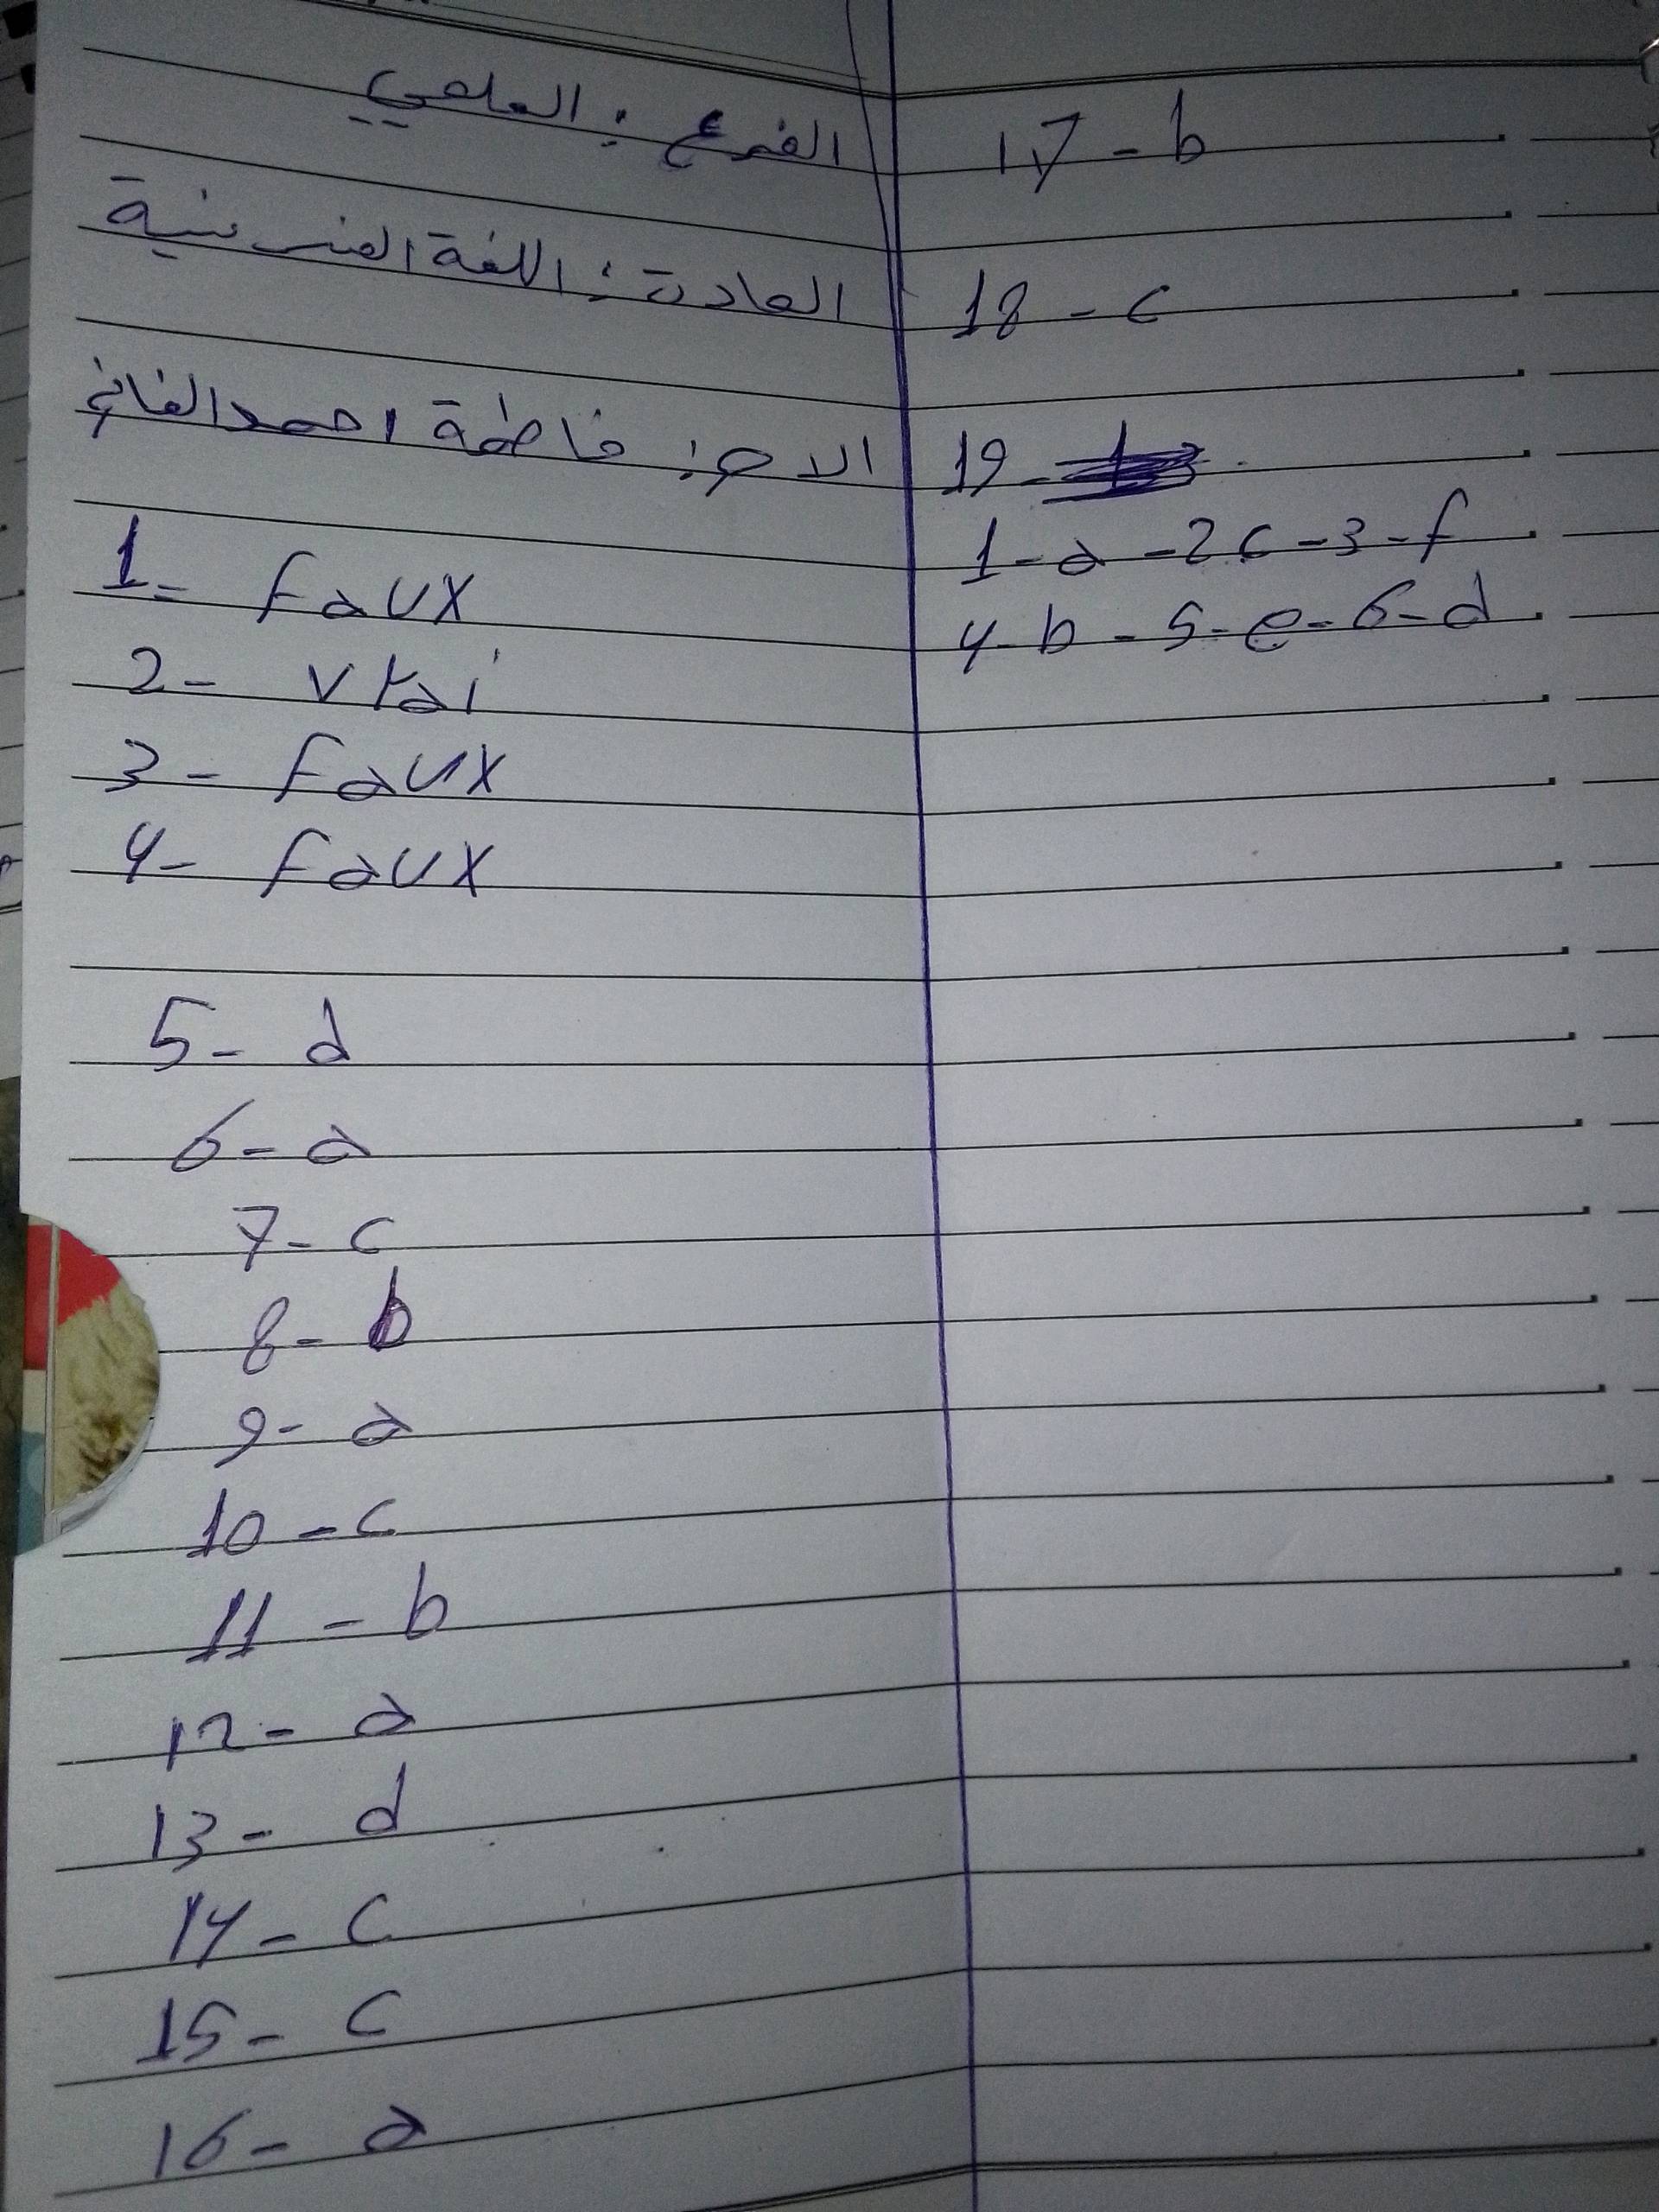 الفرع : العلمي
المادة : اللغة الفرنسية
الاسم : فاطمة احمد
1- faux
2- vrai
3- faux
4- faux
5- d
6- a
7- c
8- b
9- a
10 - c
11 - b
12 - a
13 - d
14 - c
15 - c
16 - a
17 - b
18 - c
19 -
1 - a - 2 c - 3 - f
4 - b - 5 - e - 6 - d